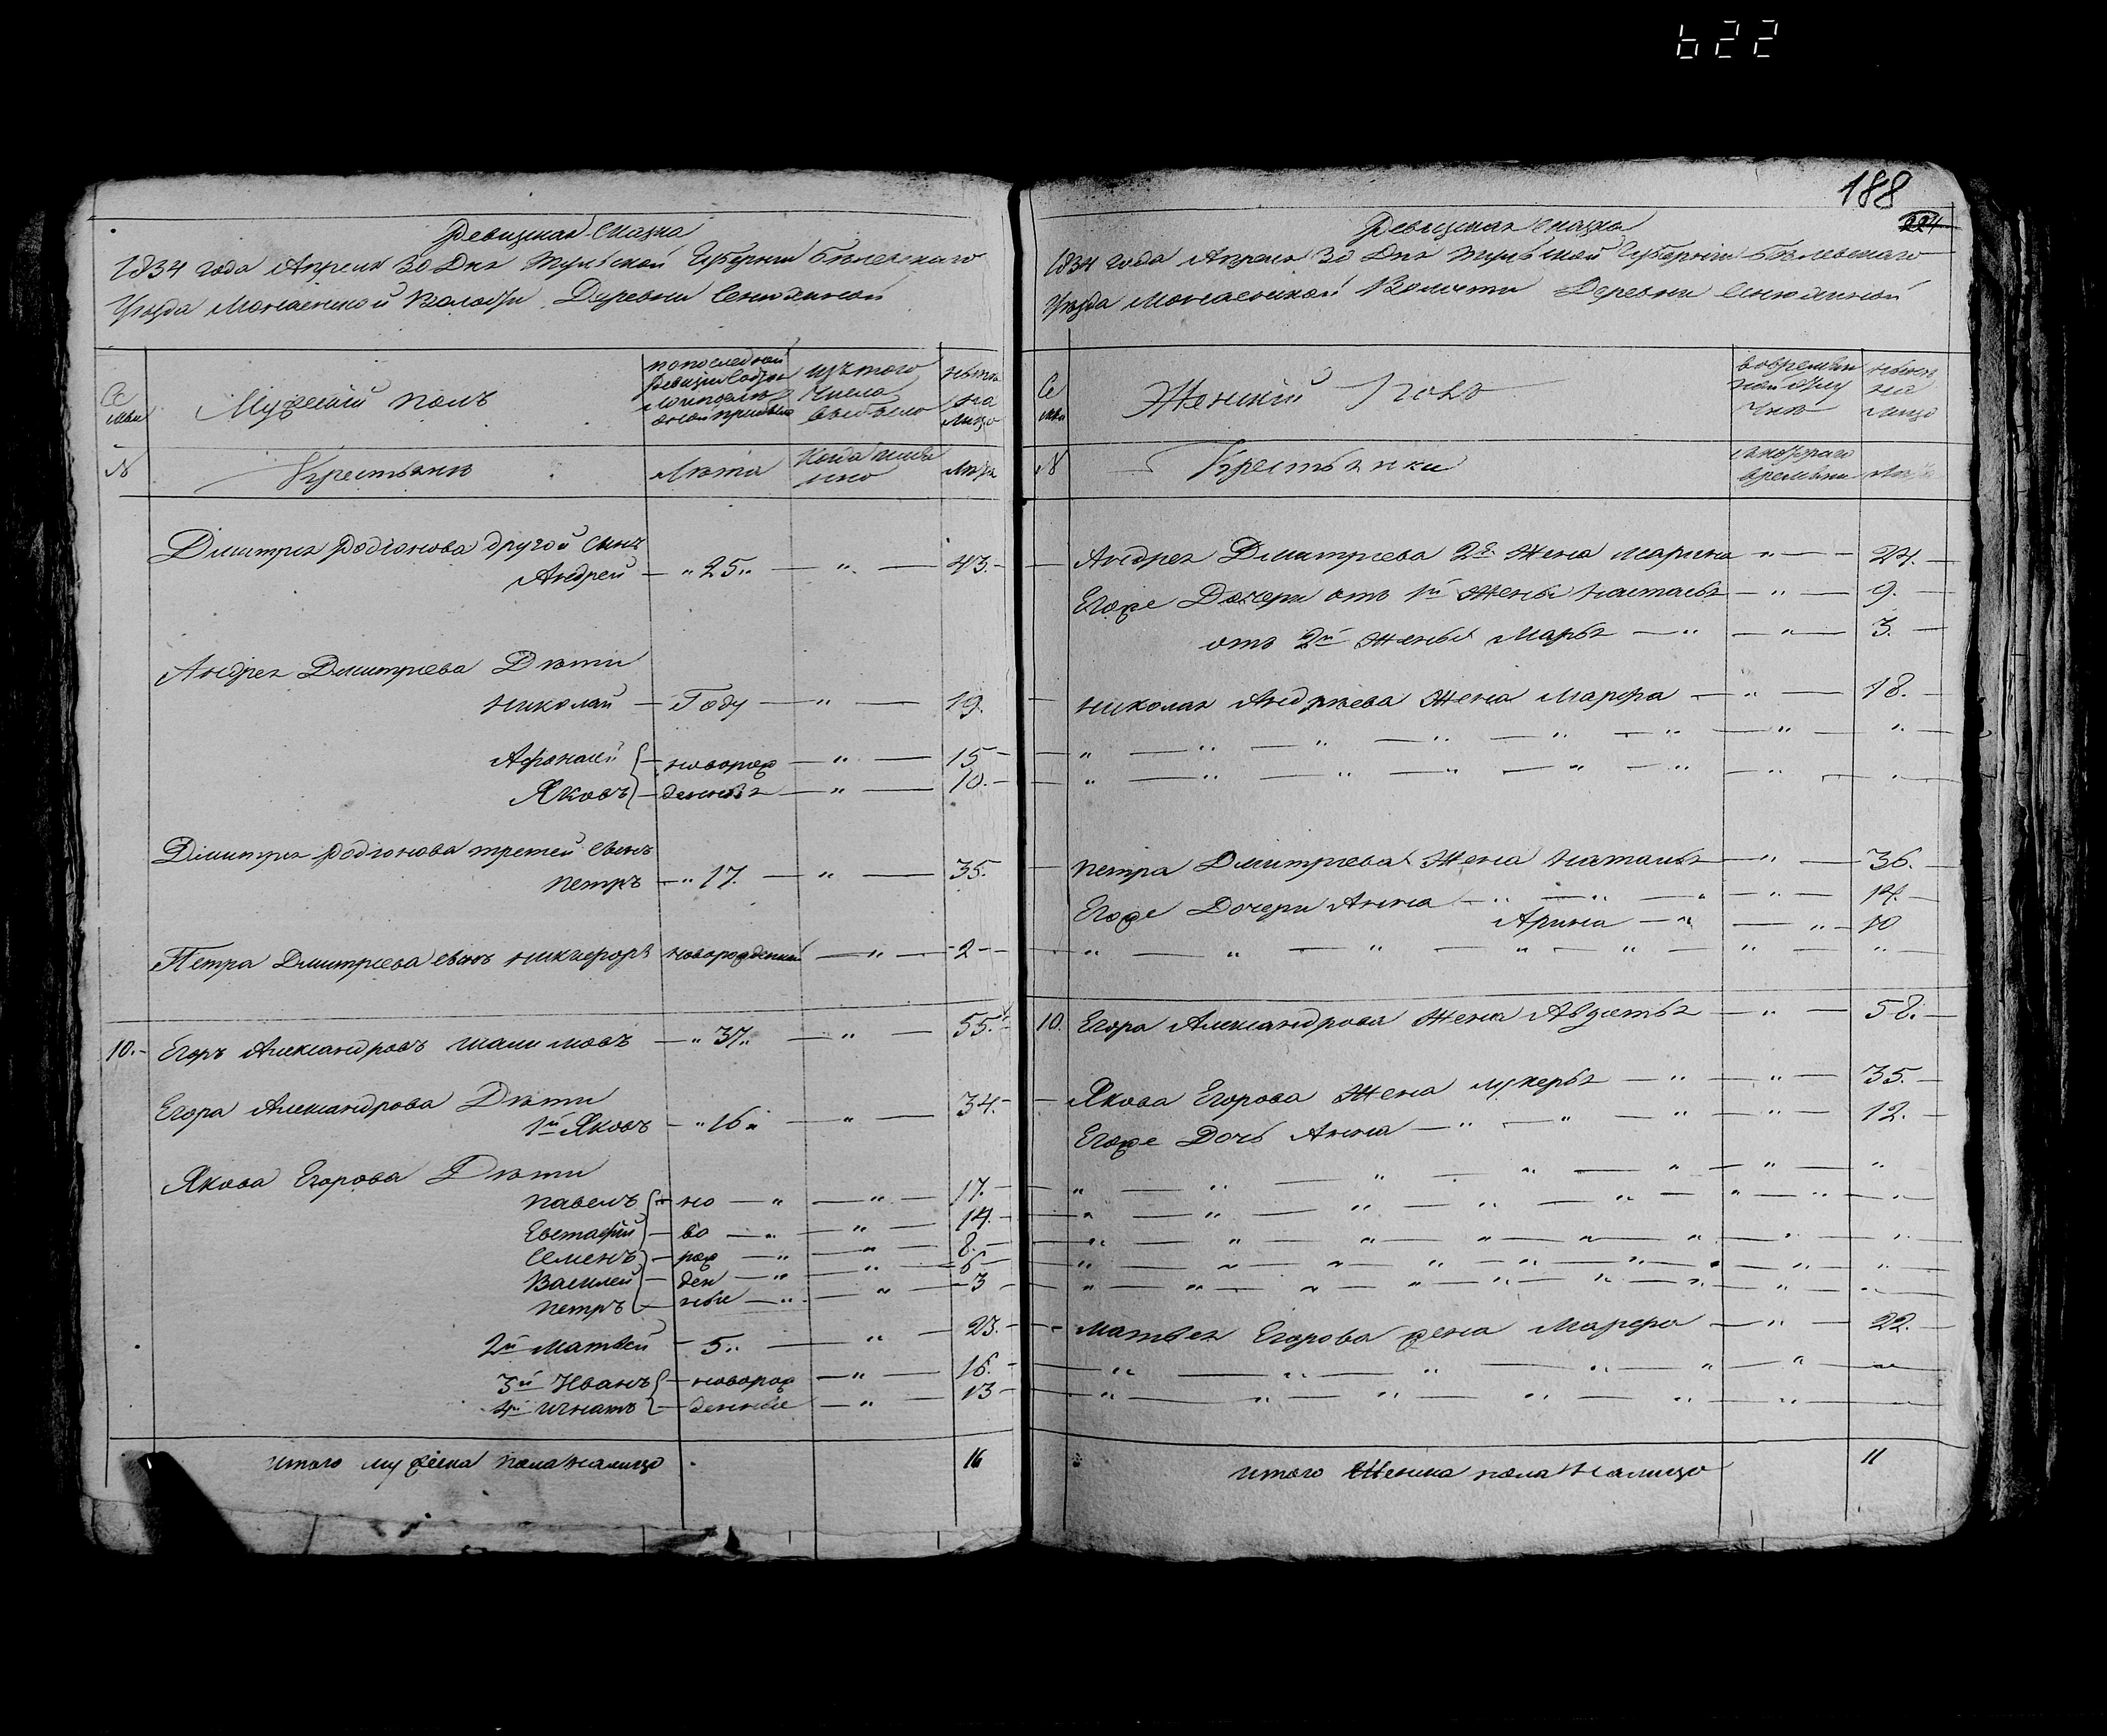 622
188
224
Ревизская Сказка
1834 года Апреля 30 Дня Тульской Губернии Бѣлевскаго
Уезда Монаенской Волости Деревни Сенюхиной
Се
мьи
Мужеский полъ
по последней
ревизии состо
яло и после
оной прибыло
изъ того
числа
выбыло
ныне
на
лицо
№
Крестьяне
Лѣта
Когда имян
но
Лѣта
Дмитрея Родіонова другой Сынъ
Андрей — „25„ — „ — 43.
Андрея Дмитриева Дѣти
Николай — Году — „ — 19.
Афонасей — новорож — „ — 15
Яковъ — денныя — „ — 10.
Дмитрея Родіонова третей Сынъ
Петръ — „17. — „ — 35.
Петра Дмитриева сынъ Никифоръ новорожденной — „ — 2
10. Егоръ Александровъ Шалимовъ — „37„ — „ — 55.
Егора Александрова Дѣти
1й Яковъ — „16„ — „ — 34.
Якова Егорова Дѣти
Павелъ — но — „ — „ — 17.
Евстафій — во — „ — „ — 14.
Семенъ — рож — „ — „ — 8.
Василей — ден — „ — „ — 6
Петръ — ные — „ — „ — 3
2й Матвей — 5„ — „ — 23.
3й Иванъ — новорож — „ — 16.
4й Игнатъ — денные — „ — 13
Итого мужеска пола налицо 16
Ревизская Сказка
1834 года Апреля 30 Дня Тульской Губерніи Бѣлевскаго
Уезда Монаенской Волости Деревни Сенюхиной
Се
мьи
Женский Полъ
во времян
ной отлу
чке
ныне
на
лицо
№
Крестьянки
съ котораго
времени
Лѣта
Андрея Дмитриева 2я Жена Марина „ — 24.
Егоже Дочери отъ 1й Жены Настасья — „ — 9.
отъ 2й Жены Марья — „ — „ — 3.
Николая Андреева Жена Марфа — „ — 18.
Петра Дмитриева Жена Наталья — „ — 36.
Егоже Дочери Анна — „ — 14.
Арина — „ — „ — 10
10. Егора Александрова Жена Авдотья — „ — 58.
Якова Егорова Жена Лукерья — „ — „ — 35.
Егоже Дочь Анна — „ — „ — 12.
Матвея Егорова жена Марфа — „ — 22.
Итого Женска пола налицо 11